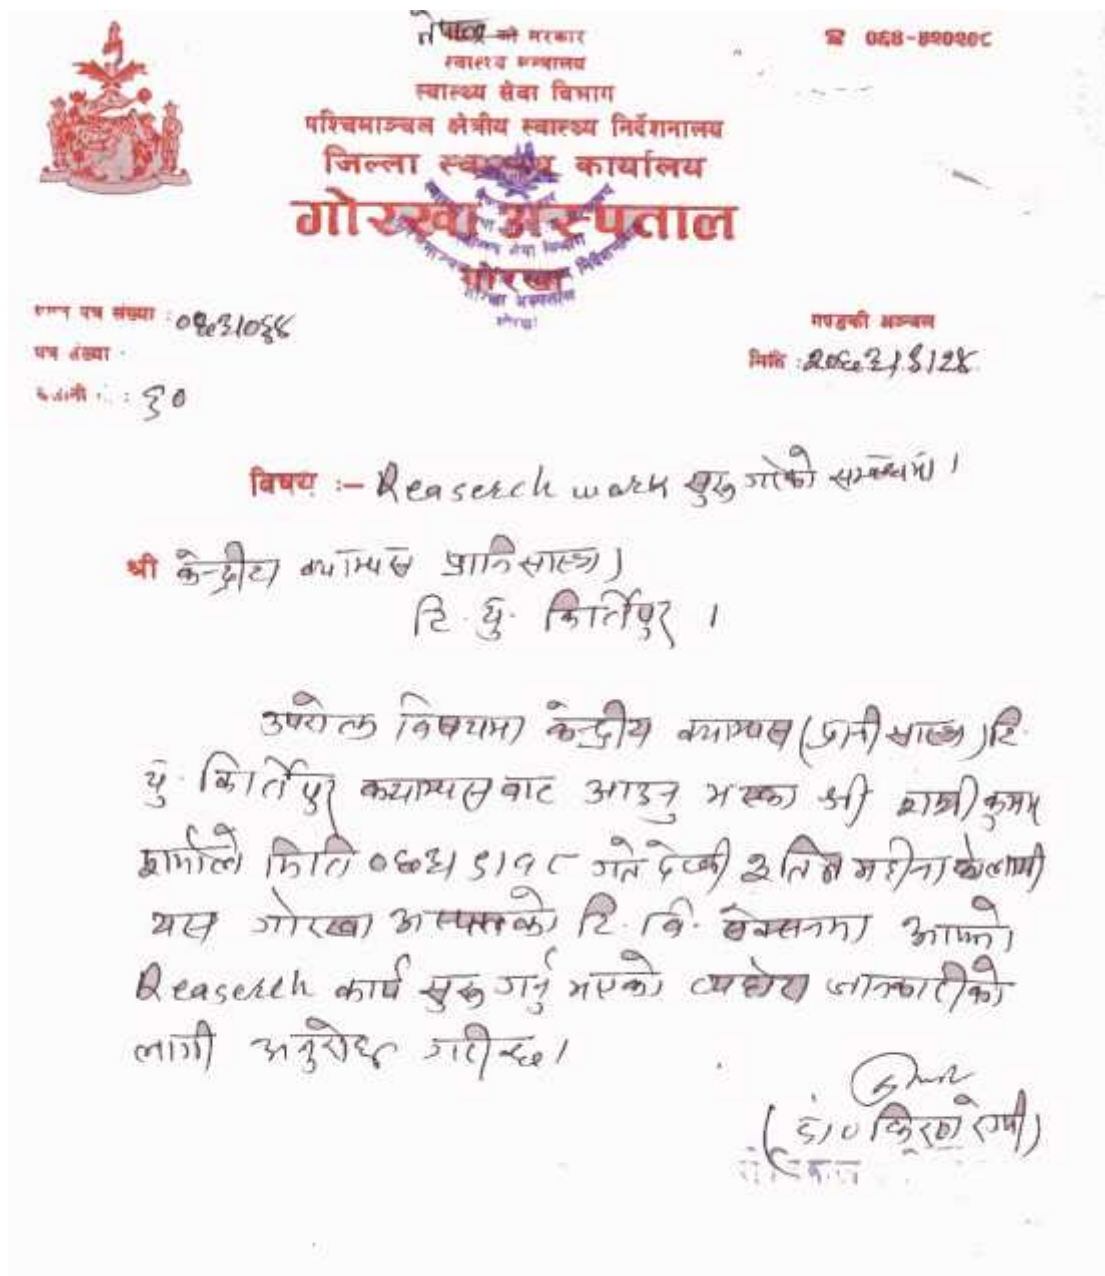 नेपाल को सरकार
स्वास्थ्य मन्त्रालय
स्वास्थ्य सेवा विभाग
पश्चिमाञ्चल क्षेत्रीय स्वास्थ्य निर्देशनालय
जिल्ला स्वास्थ्य कार्यालय
गोरखा अस्पताल
गोरखा
☎ ०६४-४२०२०८
पत्र संख्या : ०६३/०६४
गण्डकी अञ्चल
पत्र संख्या
मिति : २०६३/९/२४
चलानी : ६०
विषय :- Reaserch work सुरु गरेको सम्बन्धमा ।
श्री केन्द्रीय क्याम्पस प्रानिसास्त्र)
टि. यु. किर्तिपुर ।
उपरोक्त विषयमा केन्द्रीय क्याम्पस (प्रानी सास्त्र) टि.
यु. किर्तिपुर क्याम्पस बाट आउनु भएका श्री कुमार
शर्माले मिति ०६३/९/१८ गते देखी ३ तिन महीना को लागी
यस गोरखा अस्पतालको टि. वि. सेक्सनमा आफ्नो
Reaserch कार्य सुरु गर्नु भएको व्यहोरा जानकारीको
लागी अनुरोध गरीन्छ ।